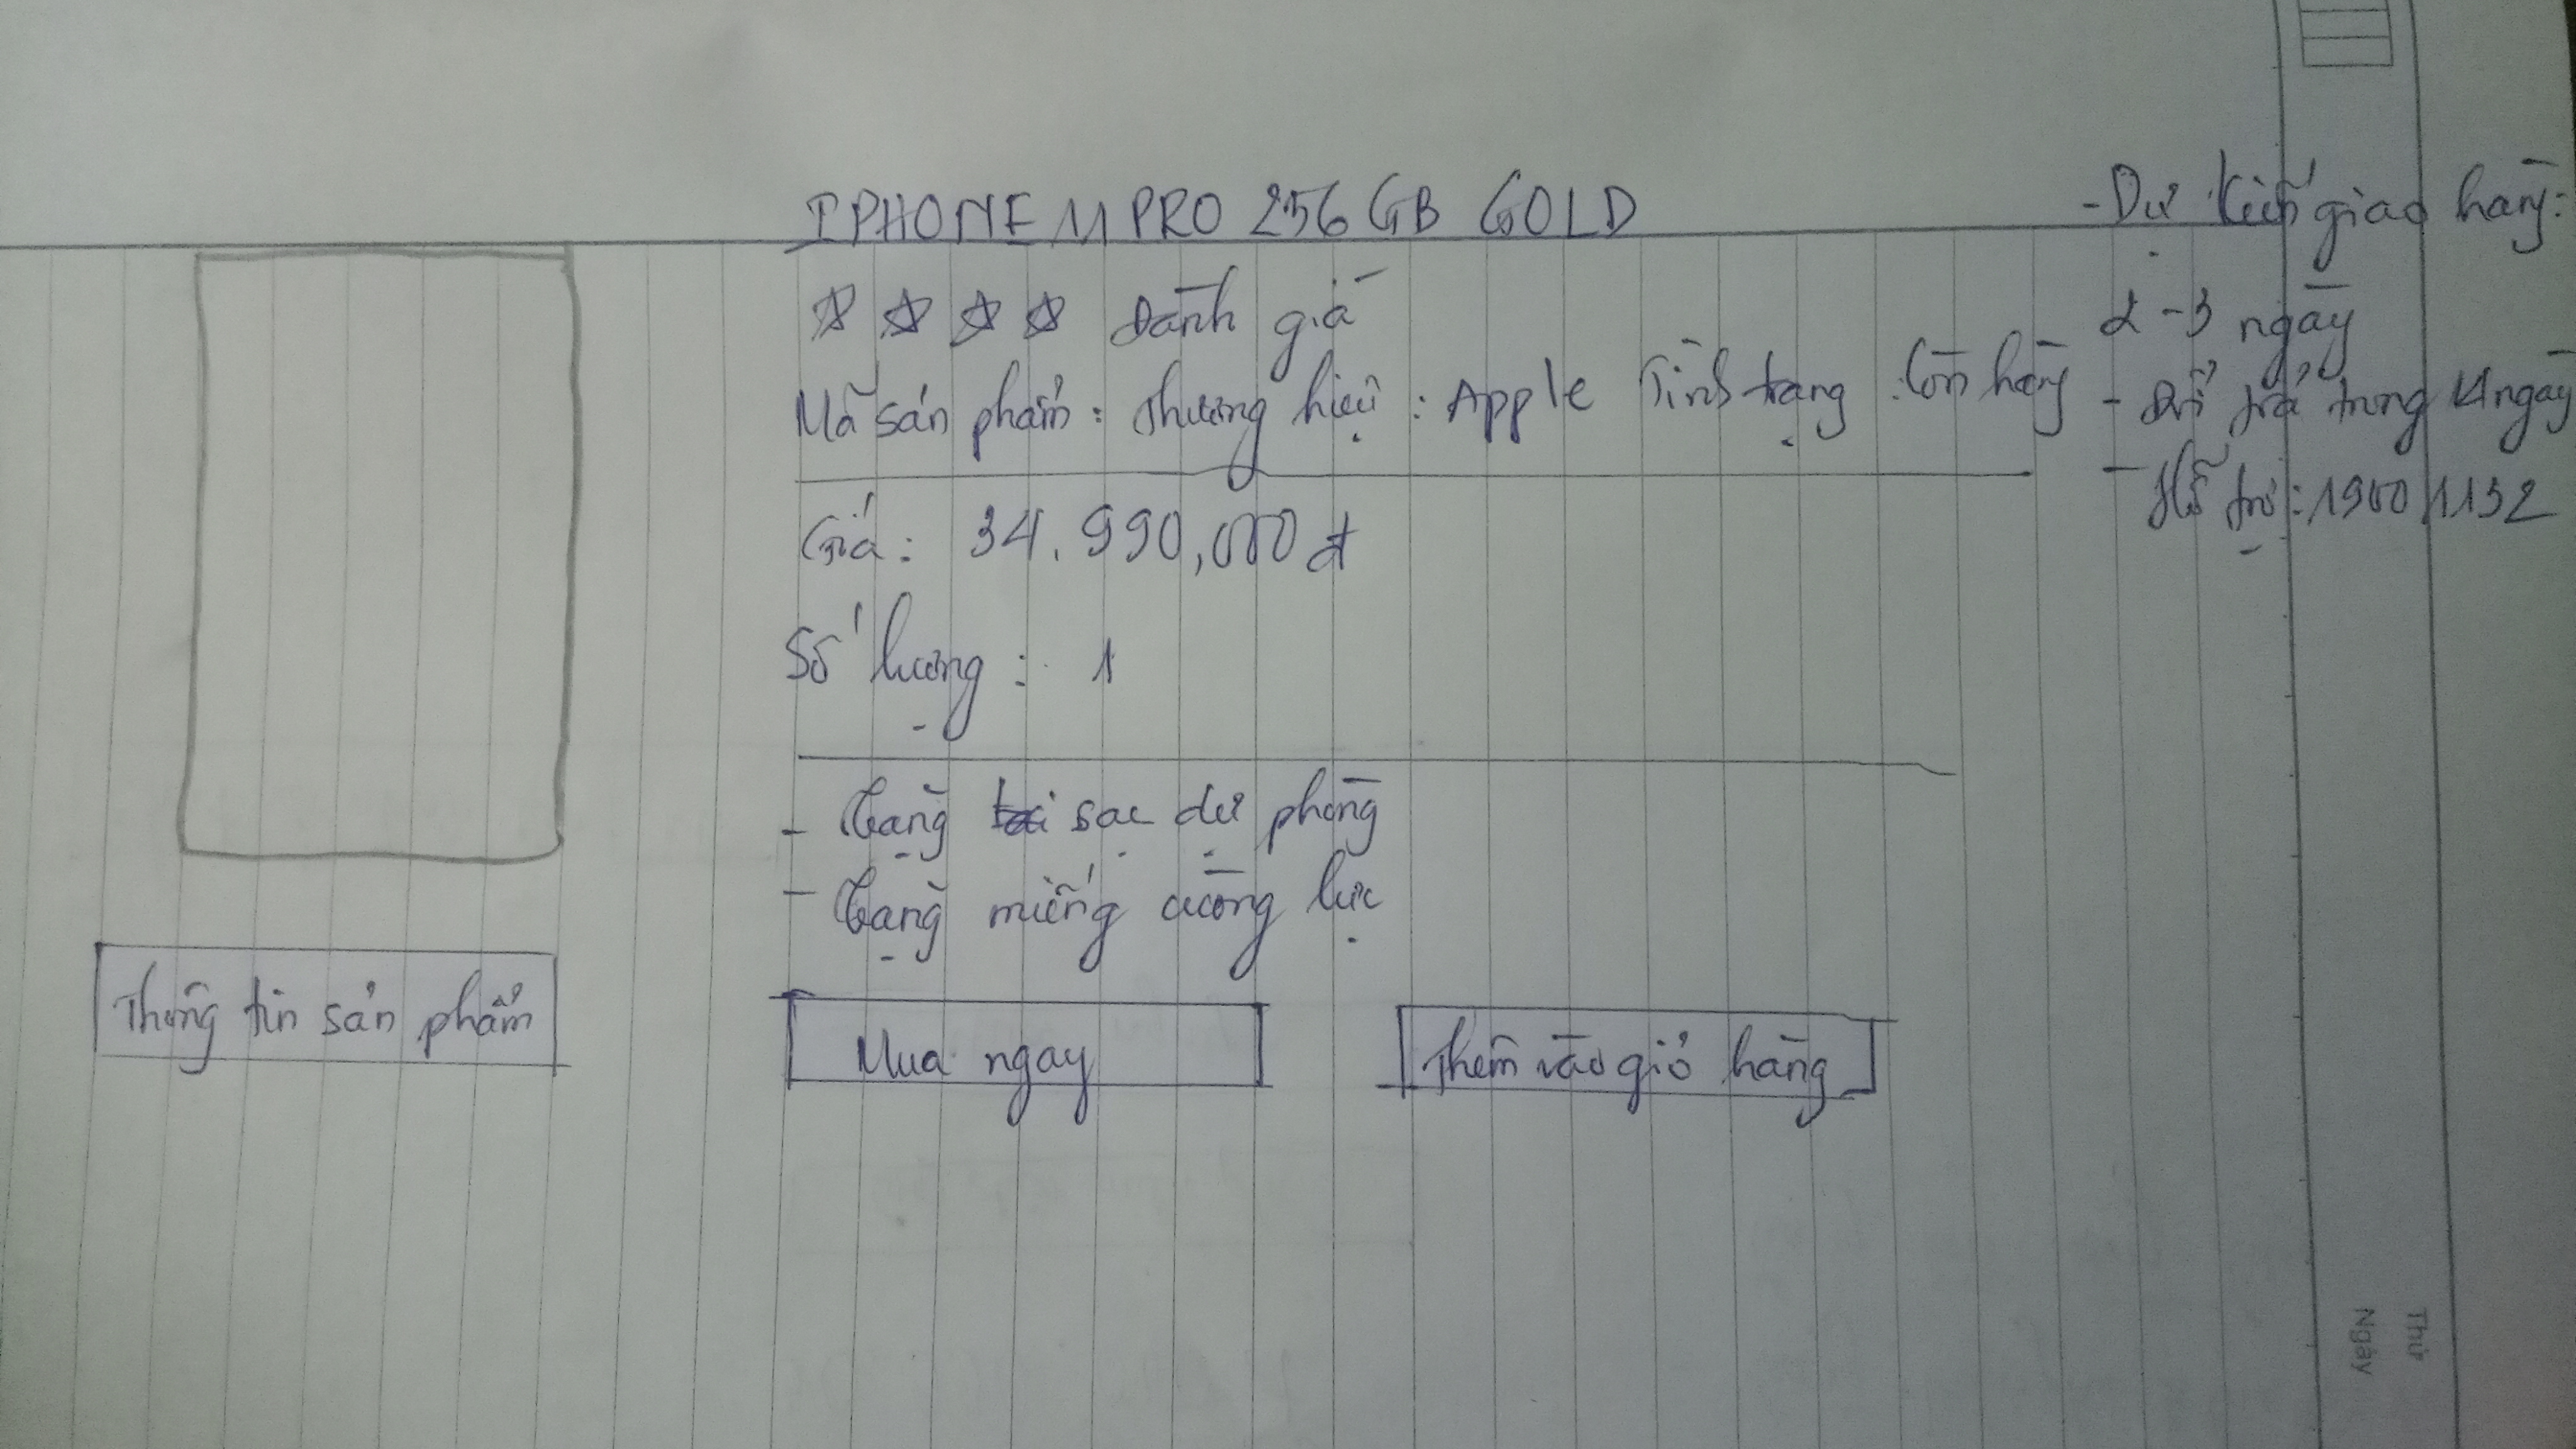 IPHONE 11 PRO 256 GB GOLD
☆ ☆ ☆ ☆ Đánh giá
Mã sản phẩm: Thương hiệu: Apple Tình trạng: Còn hàng
Giá: 34.990,000 đ
Số lượng: 1
- Tặng sạc dự phòng
- Tặng miếng cường lực
Mua ngay
Thêm vào giỏ hàng
Thông tin sản phẩm
- Dự kiến giao hàng:
2 - 3 ngày
- Đổi trả trong 14 ngày
- Hỗ trợ: 1900 1132
Thứ
Ngày